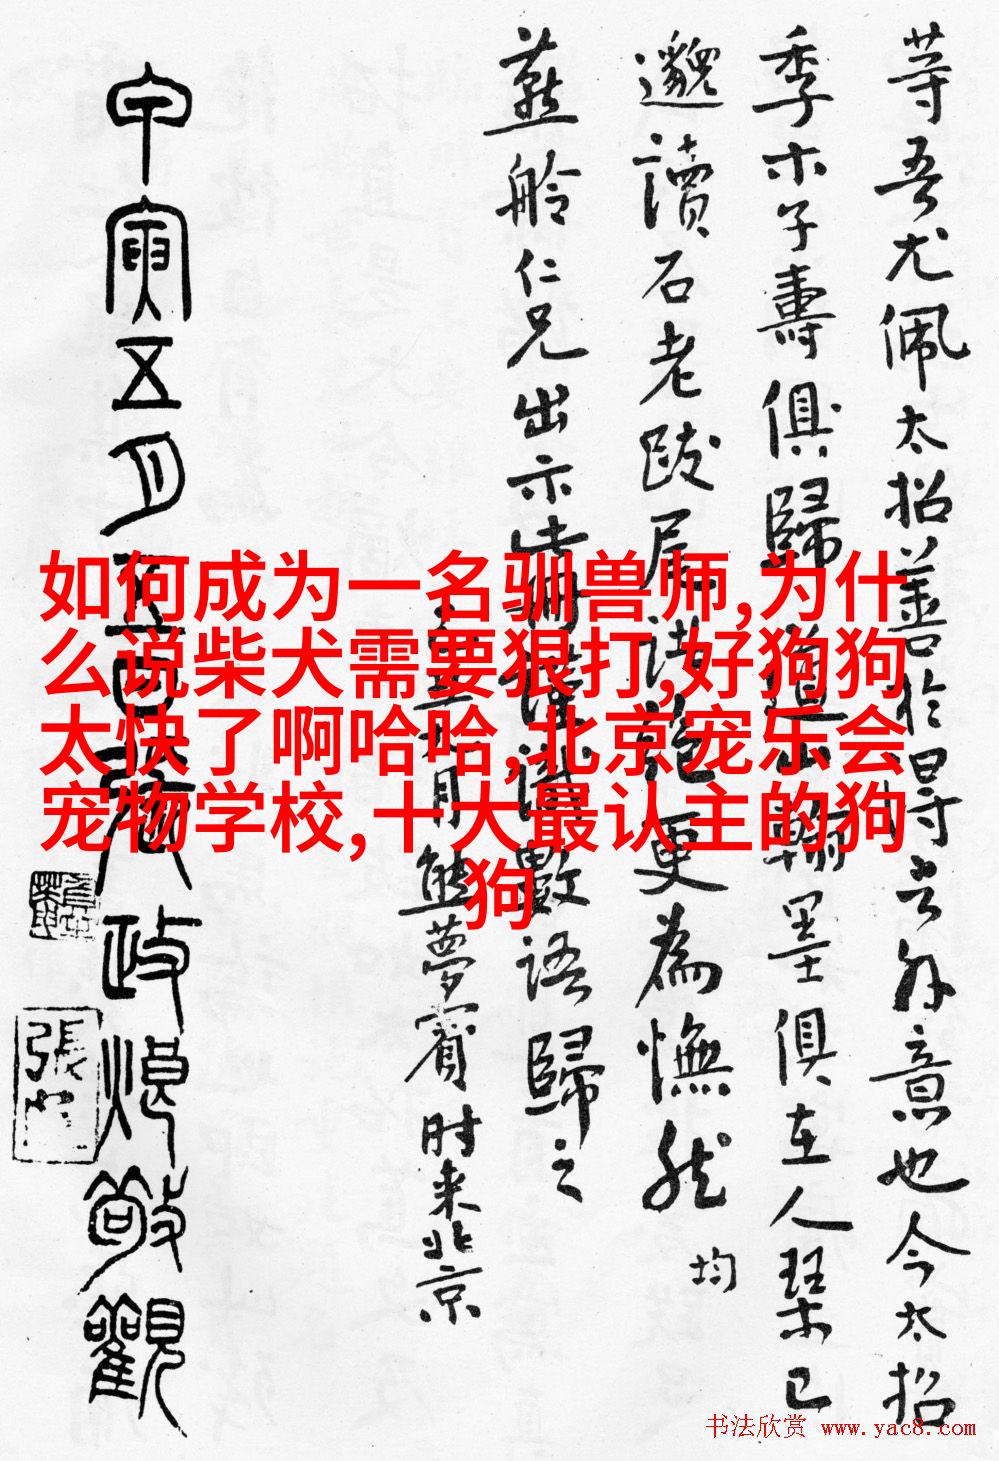 荨吾尤佩太招善於得言外意也今太招
季木子壽俱歸道山翰墨俱在人琴已
邈讀石老跋尾諸記更為憮然 均
藝舲仁兄出示此冊謹識數語歸之
五月熊夢賓时来北京
甲寅五月政烺敬觀
張
如何成为一名驯兽师,为什
么说柴犬需要狠打,好狗狗
太快了啊哈哈,北京宠乐会
宠物学校,十大最认主的狗
狗
书法欣赏 www.yac8.com